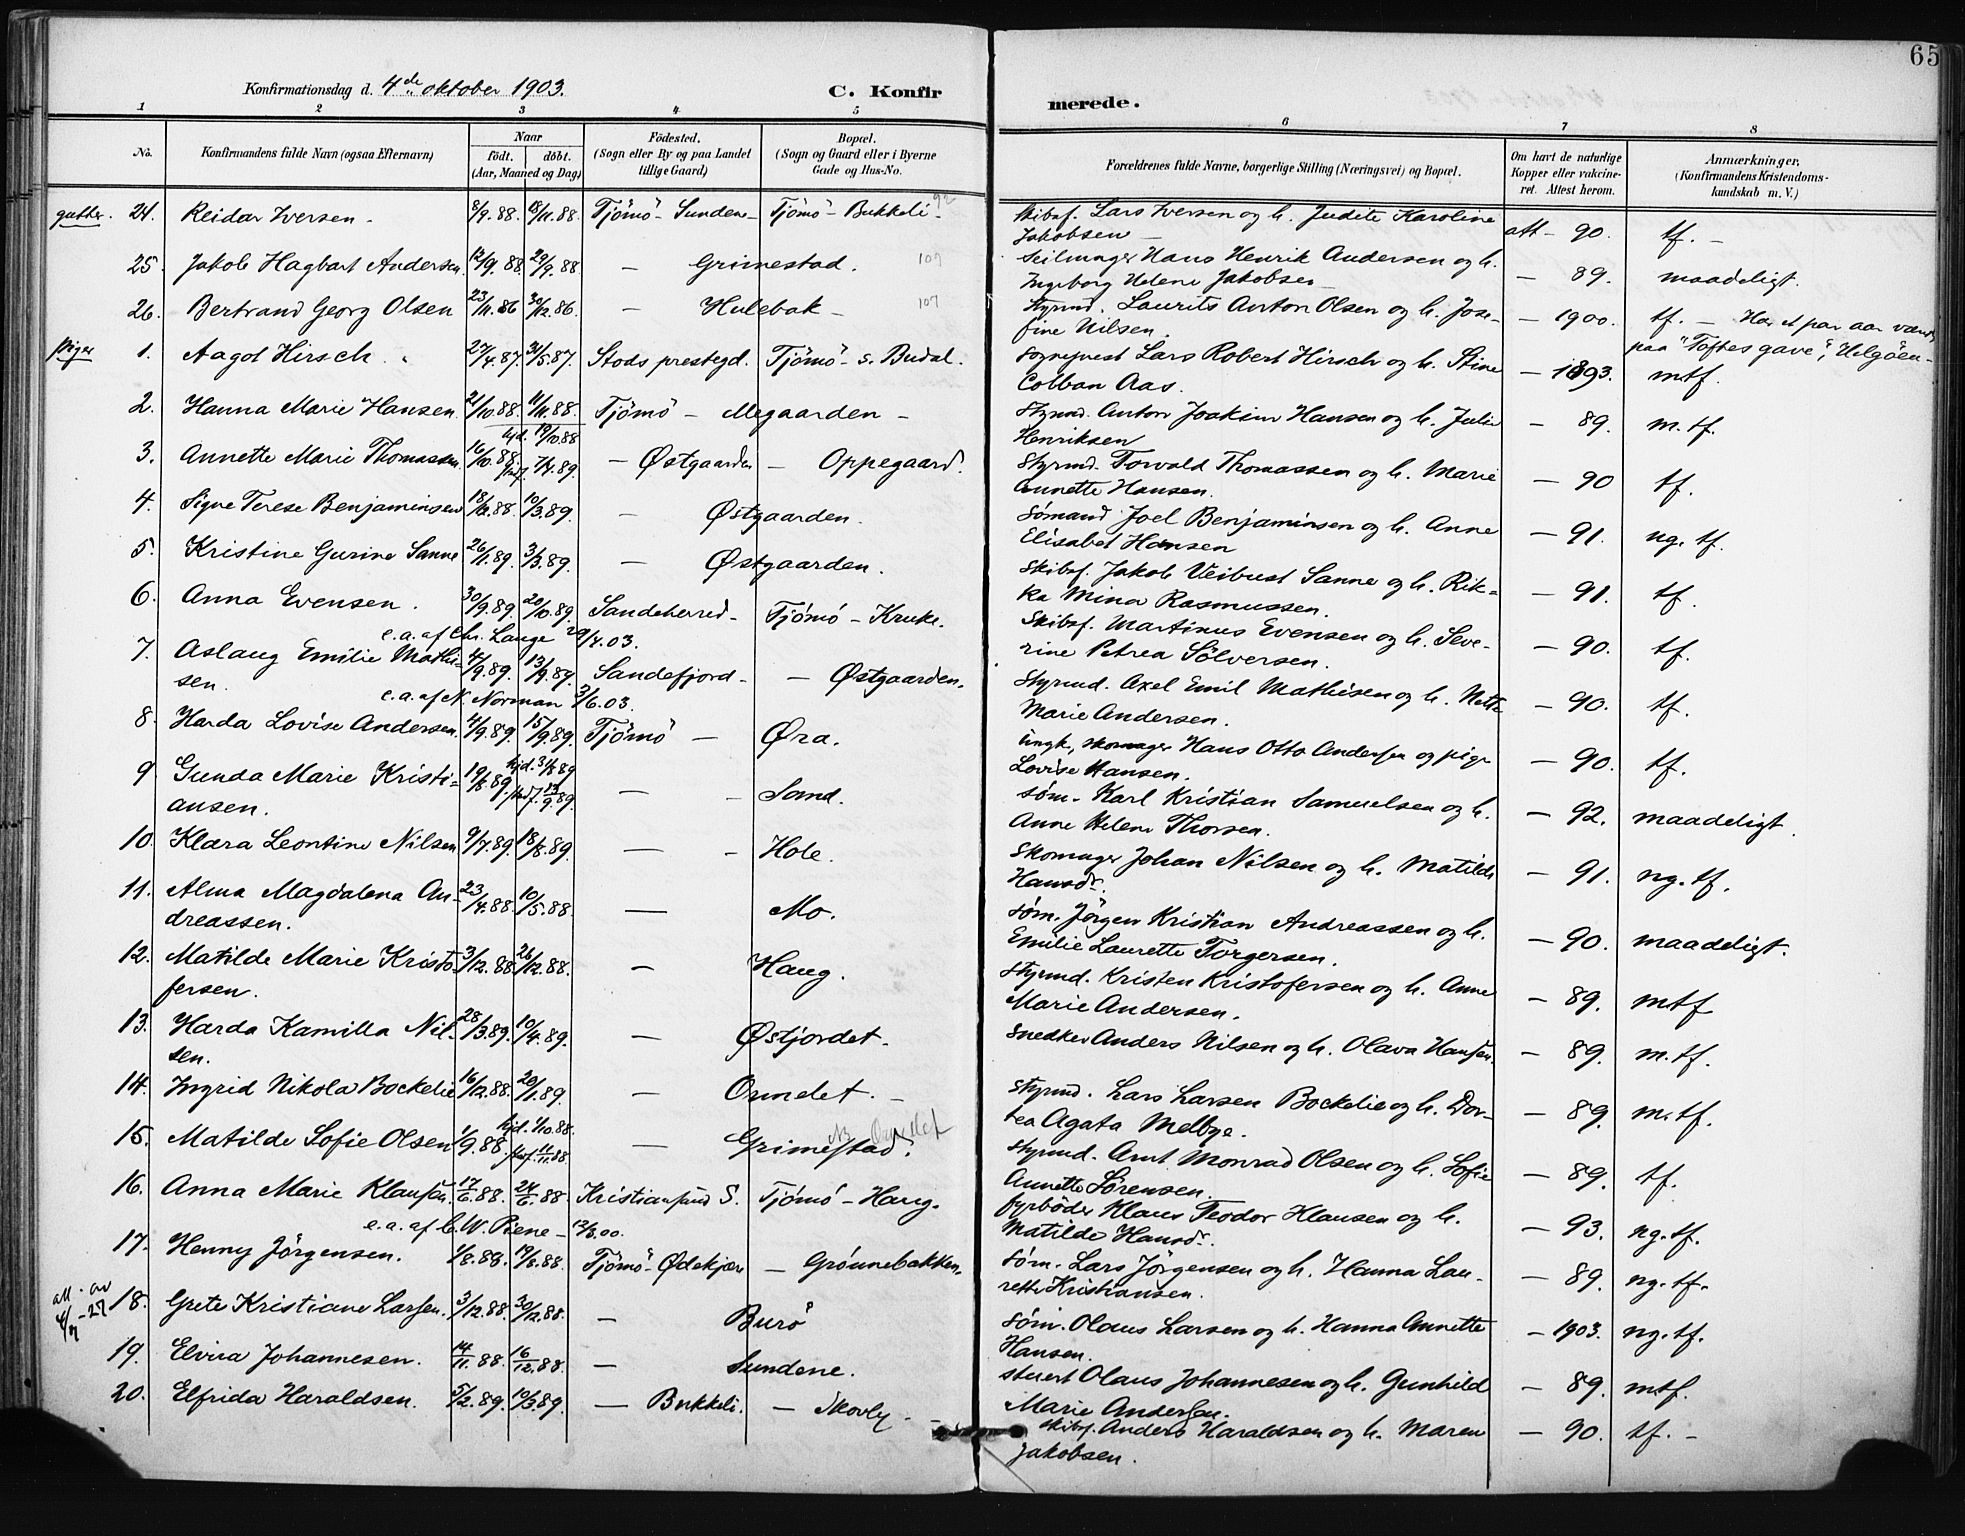 65
Konfirmationsdag d. 4de oktober 1903.
C. Konfir
merede.
1 2 3 4 5 6 7 8
No.
Konfirmandens fulde Navn (ogsaa Efternavn)
Naar
födt. döbt.
(Aar, Maaned og Dag)
Födested.
(Sogn eller By og paa Landet
tillige Gaard)
Bopæl.
(Sogn og Gaard eller i Byerne
Gade og Hus-No.
Forældrenes fulde Navne, borgerlige Stilling (Næringsvei) og Bopæl.
Om havt de naturlige
Kopper eller vakcine-
ret. Attest herom.
Anmærkninger.
(Konfirmandens Kristendoms-
kundskab m. V.)
gutter. 24. Reidar Iversen - 8/9.88. 18/11.88. Tjömö - Sundene - Tjömö - Bukkeli - 92
skibsf. Lars Iversen og h. Judite Karoline
Jakobsen - att - 90. tf. -
25. Jakob Hagbart Andersen. 12/9.88. 29/9.88. - Grimestad. 109
Seilmager Hans Henrik Andersen og h.
Ingeborg Helene Jakobsen - - 89. maadeligt.
26. Bertrand Georg Olsen 23/11.86 30/12.86. - Hulebak - 107
styrmd. Laurits Anton Olsen og h. Jose-
fine Nilsen. - 1900. tf. - Har et par aar været
paa "Toftes gave", Helgöen -
piger 1. Aagot Hirsch. 27/4.87. 31/5.87. Stods prestegd. Tjömö - s. Budal.
Sogneprest Lars Robert Hirsch og h. Stine
Colban Aas. - 1893. mtf.
2. Hanna Marie Hansen. 21/10.88. 11/11.88. Tjömö - Megaarden -
styrmd. Anton Joakim Hansen og h. Julie
Henriksen - 89. m.tf.
hjd. 19/10 88
3. Annette Marie Thomassen. 16/10.88. 7/4.89. - Østgaarden - Oppegaard.
Styrmd. Torvald Thomassen og h. Marie
Annette Hansen. - 90 tf.
4. Signe Terese Benjaminsen 18/12.88. 10/3.89. - Østgaarden.
Sømand Joel Benjaminsen og h. Anne
Elisabet Hansen - 91. ng. tf.
5. Kristine Gurine Sanne 26/1.89. 3/3.89. - Østgaarden.
skibsf. Jakob Veibust Sanne og h. Rik-
ka Mina Rasmussen. - 91. tf.
6. Anna Evensen. 30/9.89. 20/10.89. Sandeherred - Tjömö - Kruke.
e.a. af Chr. Lange 29/4.03.
Skibsf. Martinus Evensen og h. Seve-
rine Petrea Sölversen. - 90. tf.
7. Aslaug Emilie Mathi-
sen. 4/9.89. 13/9.89. Sandefjord - - Østgaarden.
e.a. af N. Norman 3/6.03.
Styrmd. Axel Emil Mathisen og h. Nette
Marie Andersen. - 90. tf.
8. Harda Lovise Andersen. 4/9.89. 15/9.89. Tjömö - Øra.
ungk, skomager Hans Otto Andersen og pige
Lovise Hansen. - 90. tf.
hjd. 31/8 89
9. Gunda Marie Kristi-
ansen. 19/8.89. 13/9.89. - - Sand.
søm. Karl Kristian Samuelsen og h.
Anne Helene Thorsen. - 92. maadeligt.
10. Klara Leontine Nilsen 9/7.89. 18/8.89. - - Hole.
Skomager Johan Nilsen og h. Matilde
Hansdr. - 91. ng. tf.
11. Alma Magdalena An-
dreassen. 23/4.88. 10/5.88. - Mo.
søm. Jörgen Kristian Andreassen og h.
Emilie Laurette Torgersen. - 90. maadeligt.
12. Matilde Marie Kristo-
fersen. 3/12.88. 26/12.88. - Haug.
Styrmd. Kristen Kristofersen og h. Anne
Marie Andersen. - 89. mtf
13. Harda Kamilla Nil-
sen. 28/3.89. 10/4.89. - Østjordet.
Snedker Anders Nilsen og h. Olava Hansen. - 89. m.tf.
14. Ingrid Nikola Bockelie 16/12.88. 20/1.89. - Ormelet. -
Styrmd. Lars Larsen Bockelie og h. Dor-
tea Agata Melbye. - 89. m.tf.
hjd. 1/10.88.
15. Matilde Sofie Olsen 1/9.88. 11/11.88. - Grimestad.
styrmd. Arnt Monrad Olsen og h. Sofie
Annette Sörensen. - 89. tf.
16. Anna Marie Klausen. 17/6.88. 24/6.88 Kristiansund S. Tjömö - Haug.
e.a. af C. W. Piene -
fyrböder Klaus Teodor Klausen og h.
Matilde Hansdr. - 93. ng. tf.
17. Henny Jörgensen. 1/8.88. 19/8.88. Tjömö - Ødekjær - Grönnebakken.
søm. Lars Jörgensen og h. Hanna Lau-
rette Kristiansen. - 89. ng. tf.
18. Grete Kristiane Larsen. 3/12.88. 30/12.88. - Burö
søm. Olaus Larsen og h. Hanna Annette
Hansen. - 1903. ng. tf.
19. Elvira Johannesen. 14/11.88. 16/12.88. - Sundene.
stuert Olaus Johannesen og h. Gunhild
Marie Andersen. - 89. mtf.
20. Elfrida Haraldsen. 5/2.89. 10/3.89. - Bukkeli. - Skovly -
skibsf. Anders Haraldsen og h. Maren
Jakobsen. - 90. tf. -